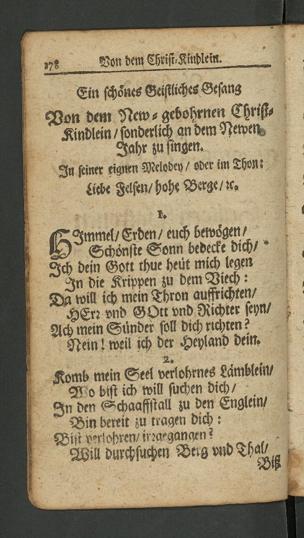 278 Von dem Christ-Kindlein.
Ein schönes Geistliches Gesang
Von dem New-gebohrnen Christ-
Kindlein/ sonderlich an dem Newen
Jahr zu singen.
In seiner eignen Melodey/ oder im Thon:
Liebe Felsen/ hohe Berge/ ꝛc.
1.
HImmel/ Erden/ euch bewögen/
Schönste Sonn bedecke dich/
Ich dein Gott thue heüt mich legen
In die Krippen zu dem Viech:
Da will ich mein Thron auffrichten/
HErr vnd GOtt vnd Richter seyn/
Ach mein Sünder soll dich richten?
Nein! weil ich der Heyland dein.
2.
Komb mein Seel verlohrnes Lämblein/
Wo bist ich will suchen dich/
In den Schaaffstall zu den Englein/
Bin bereit zu tragen dich:
Bist verlohren/ irrgegangen?
Will durchsuchen Berg vnd Thal/
Biß